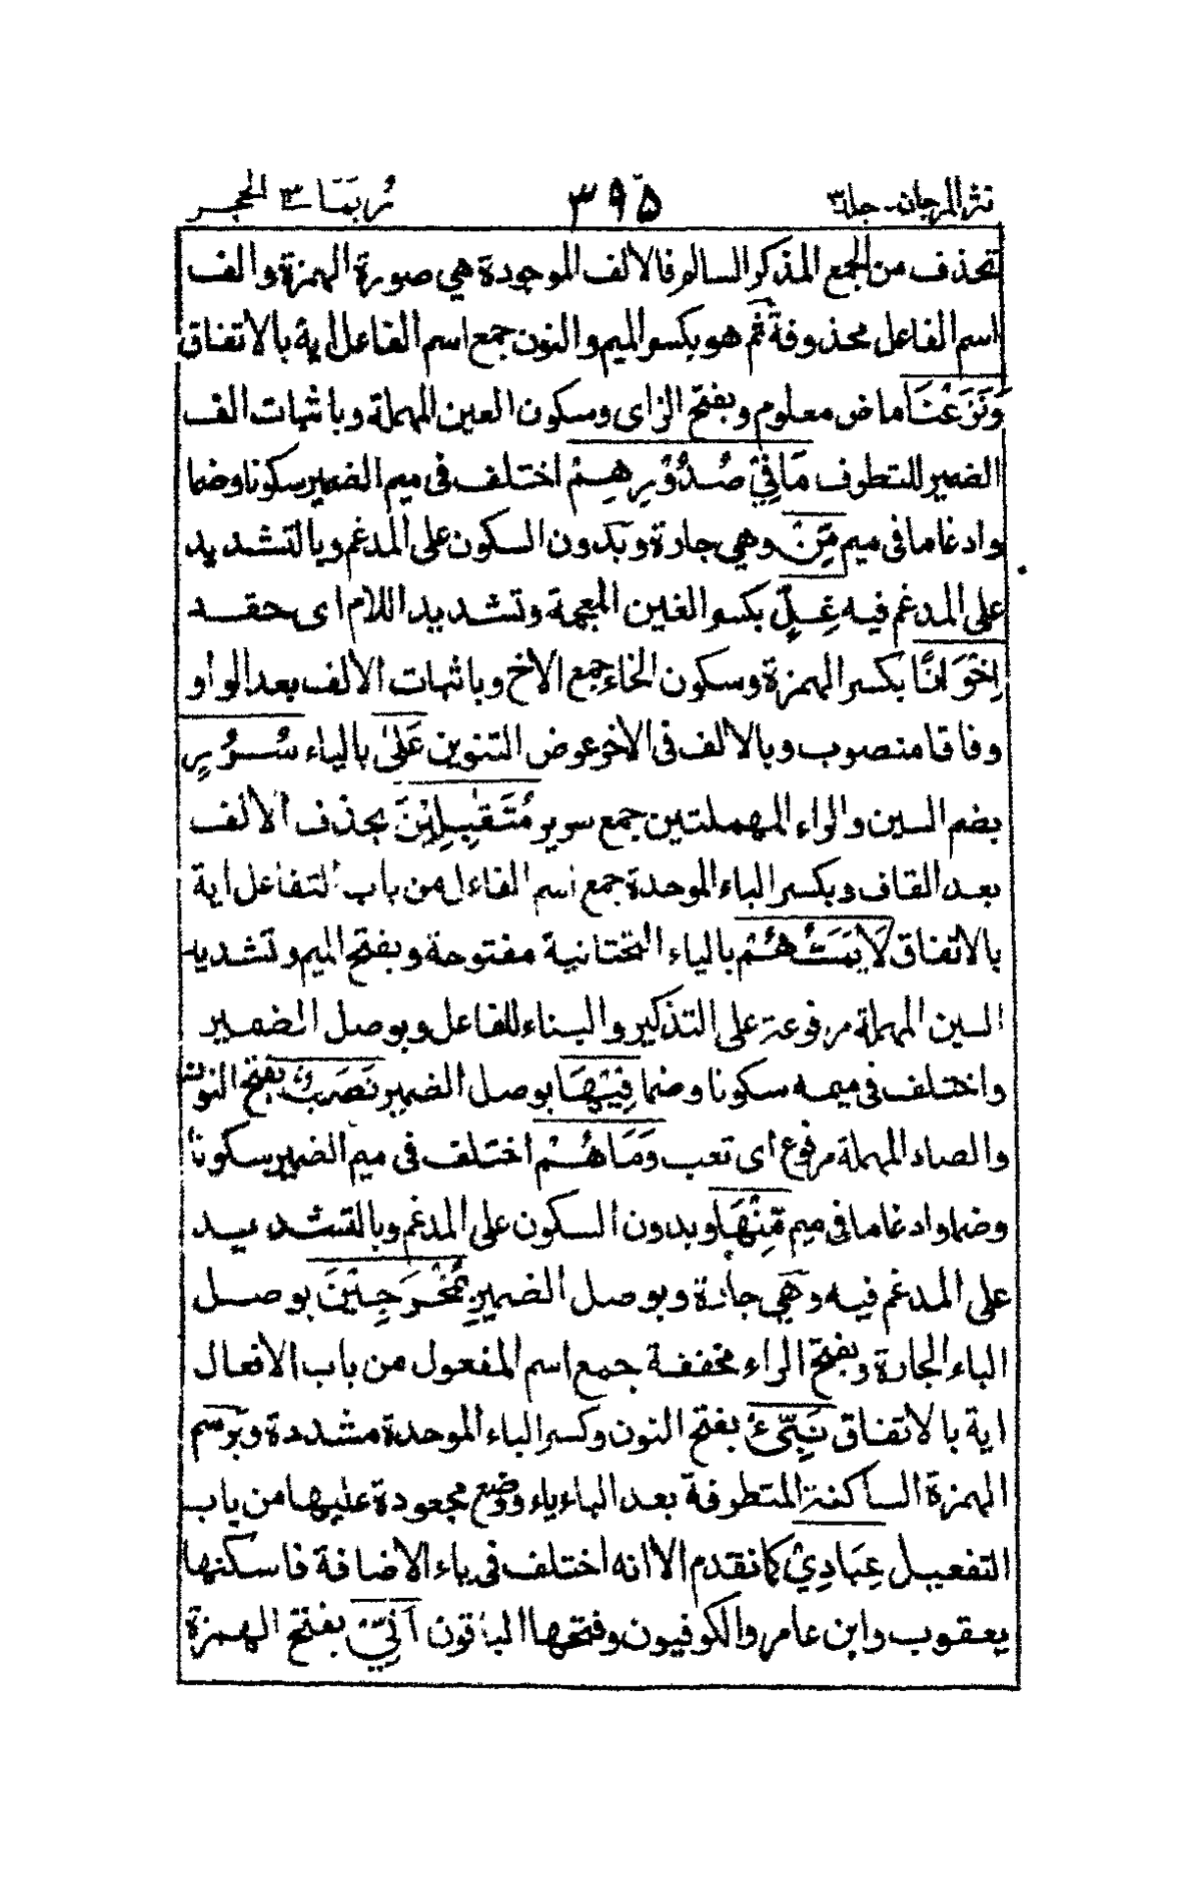 نثر المرجان - جلد ٣ ٣٩٥ رُبَمَا ١٤ الحجر
تحذف من الجمع المذكر السالم فالالف الموجودة هي صورة الهمزة والف
اسم الفاعل محذوفة ثم هو بكسر الميم والنون جمع اسم الفاعل اية بالاتفاق
وَنَزَعْنَا ماض معلوم وبفتح الزاى وسكون العين المهملة وباثبات الف
الضمير للتطرف مَا فِيْ صُدُوْرِهِمْ اختلف فى ميم الضمير سكونا وضما
وادغاما فى ميم مِّنْ وهي جارة وبدون السكون على المدغم وبالتشديد
على المدغم فيه غِلٍّ بكسر الغين المعجمة وتشديد اللام اى حقد
اِخْوَانًا بكسر الهمزة وسكون الخاء جمع الاخ وباثبات الالف بعد الواو
وفاقا منصوب وبالالف فى الاخر عوض التنوين عَلٰى بالياء سُرُرٍ
بضم السين والراء المهملتين جمع سرير مُتَقٰبِلِيْنَ بحذف الالف
بعد القاف وبكسر الباء الموحدة جمع اسم الفاعل من باب التفاعل اية
بالاتفاق لَا يَمَسُّهُمْ بالياء التحتانية مفتوحة وبفتح الميم وتشديد
السين المهملة مرفوعة على التذكير والبناء للفاعل وبوصل الضمير
واختلف فى ميمه سكونا وضما فِيْهَا بوصل الضمير نَصَبٌ بفتح النون
والصاد المهملة مرفوع اى تعب وَمَا هُمْ اختلف فى ميم الضمير سكونا
وضما وادغاما فى ميم مِّنْهَا وبدون السكون على المدغم وبالتشديد
على المدغم فيه وهي جارة وبوصل الضمير بِمُخْرَجِيْنَ بوصل
الباء الجارة وبفتح الراء مخففة جمع اسم المفعول من باب الافعال
اية بالاتفاق نَبِّئْ بفتح النون وكسر الباء الموحدة مشددة وبرسم
الهمزة الساكنة المتطرفة بعد الباء ياء ووضع مجعودة عليها من باب
التفعيل عِبَادِيْ كما تقدم الا انه اختلف فى ياء الاضافة فاسكنها
يعقوب وابن عامر والكوفيون وفتحها الباقون اَنِّيْ بفتح الهمزة